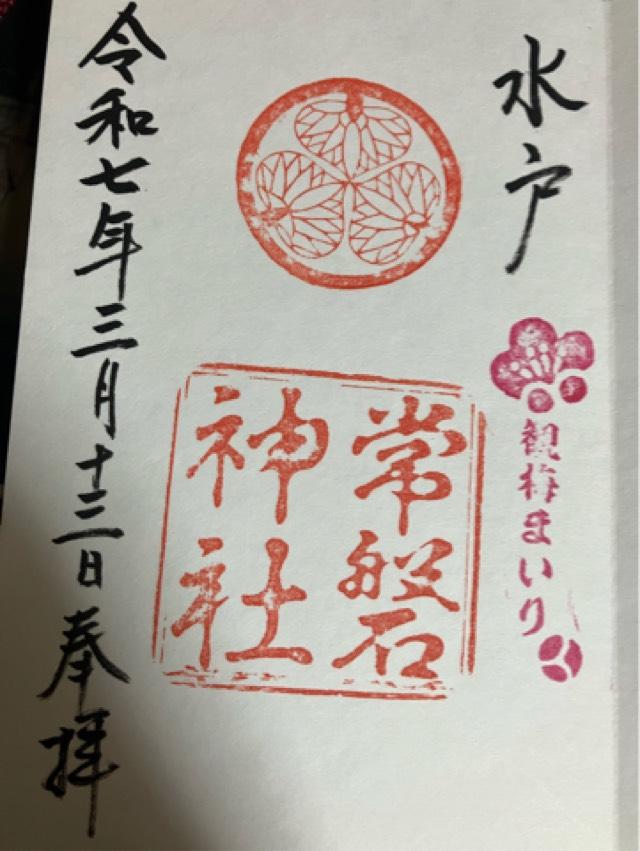 水戸
観梅まいり
常磐
神社
令和七年三月十三日奉拝